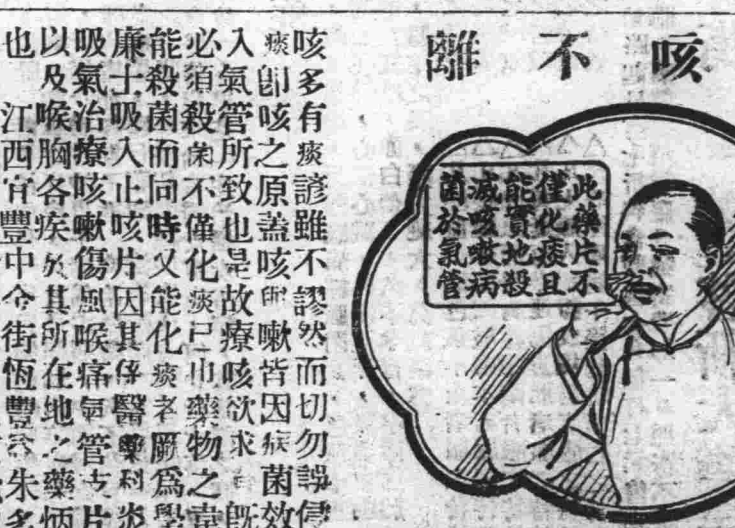 咳不離
此藥片不
僅化痰且
能實地殺
滅咳嗽病
菌於氣管
咳多有痰諺雖不謬然而切勿誤信
痰卽咳之原蓋咳與嗽皆因病菌
入氣管所致也是故療咳欲求
必須殺菌不僅化痰已也藥物之
能殺菌而同時又能化痰者厥爲
廉士吸入止咳片因其係醫藥科
吸氣治療咳嗽傷風喉痛氣管支炎
以及喉胸各疾於其所在地之藥
也 江西宜豐中令街恆豐 朱